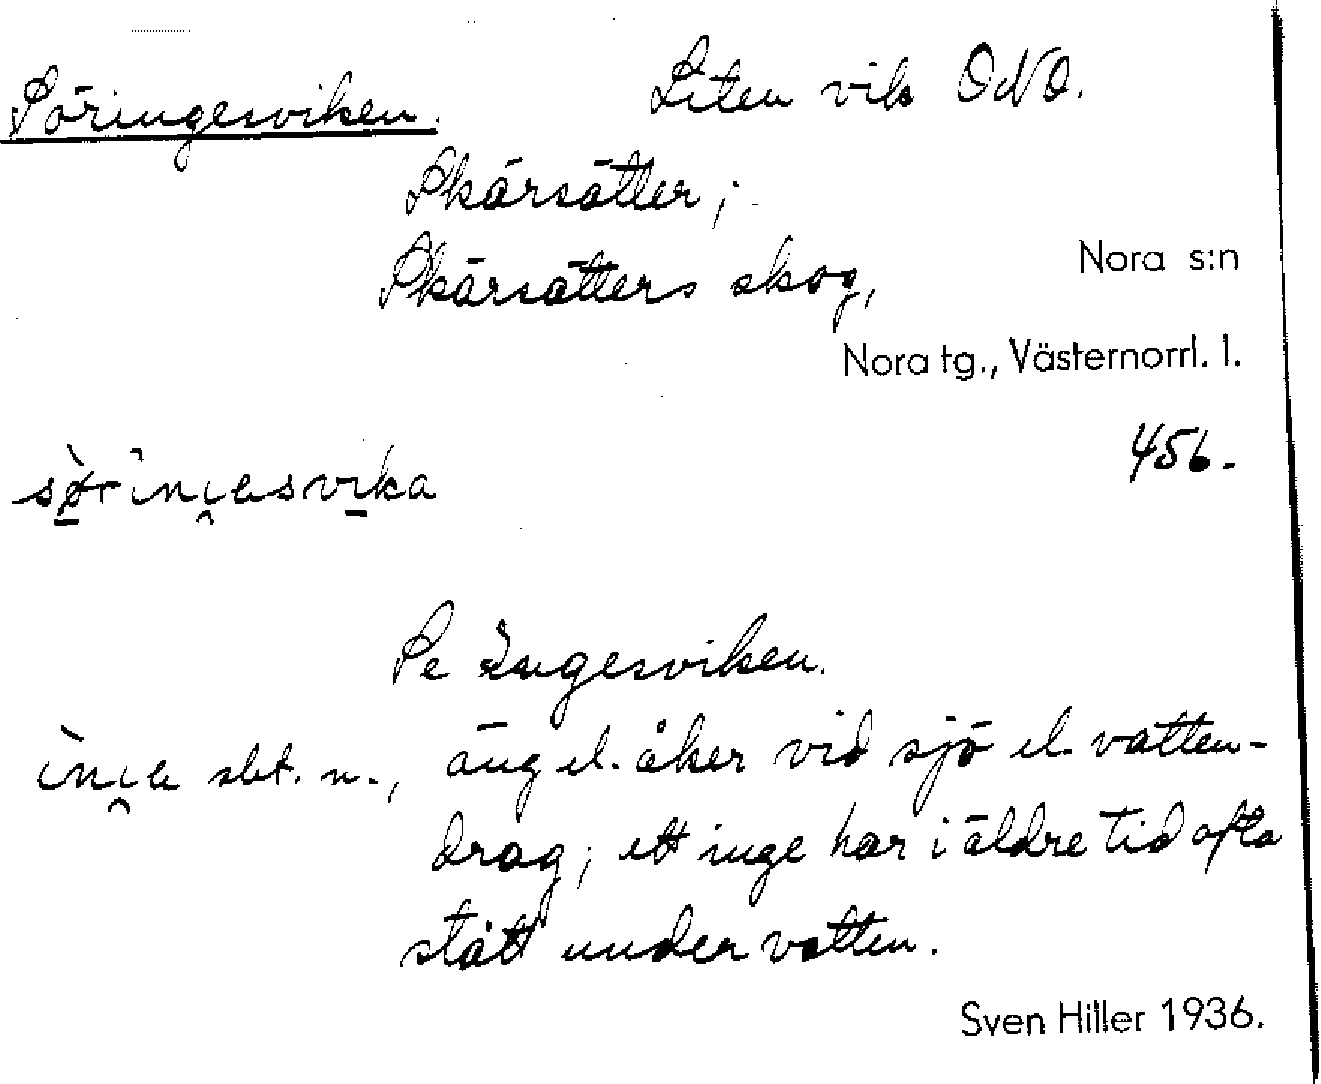 Söringesviken. Liten vik ONO.
Skärsätter;
Skärsätters skog,
Nora s:n
Nora tg., Västernorrl. l.
456.
Se Ingesviken.
sbt. n., äng el. åker vid sjö el. vatten-
drag; ett inge har i äldre tid ofta
stått under vatten.
Sven Hiller 1936.